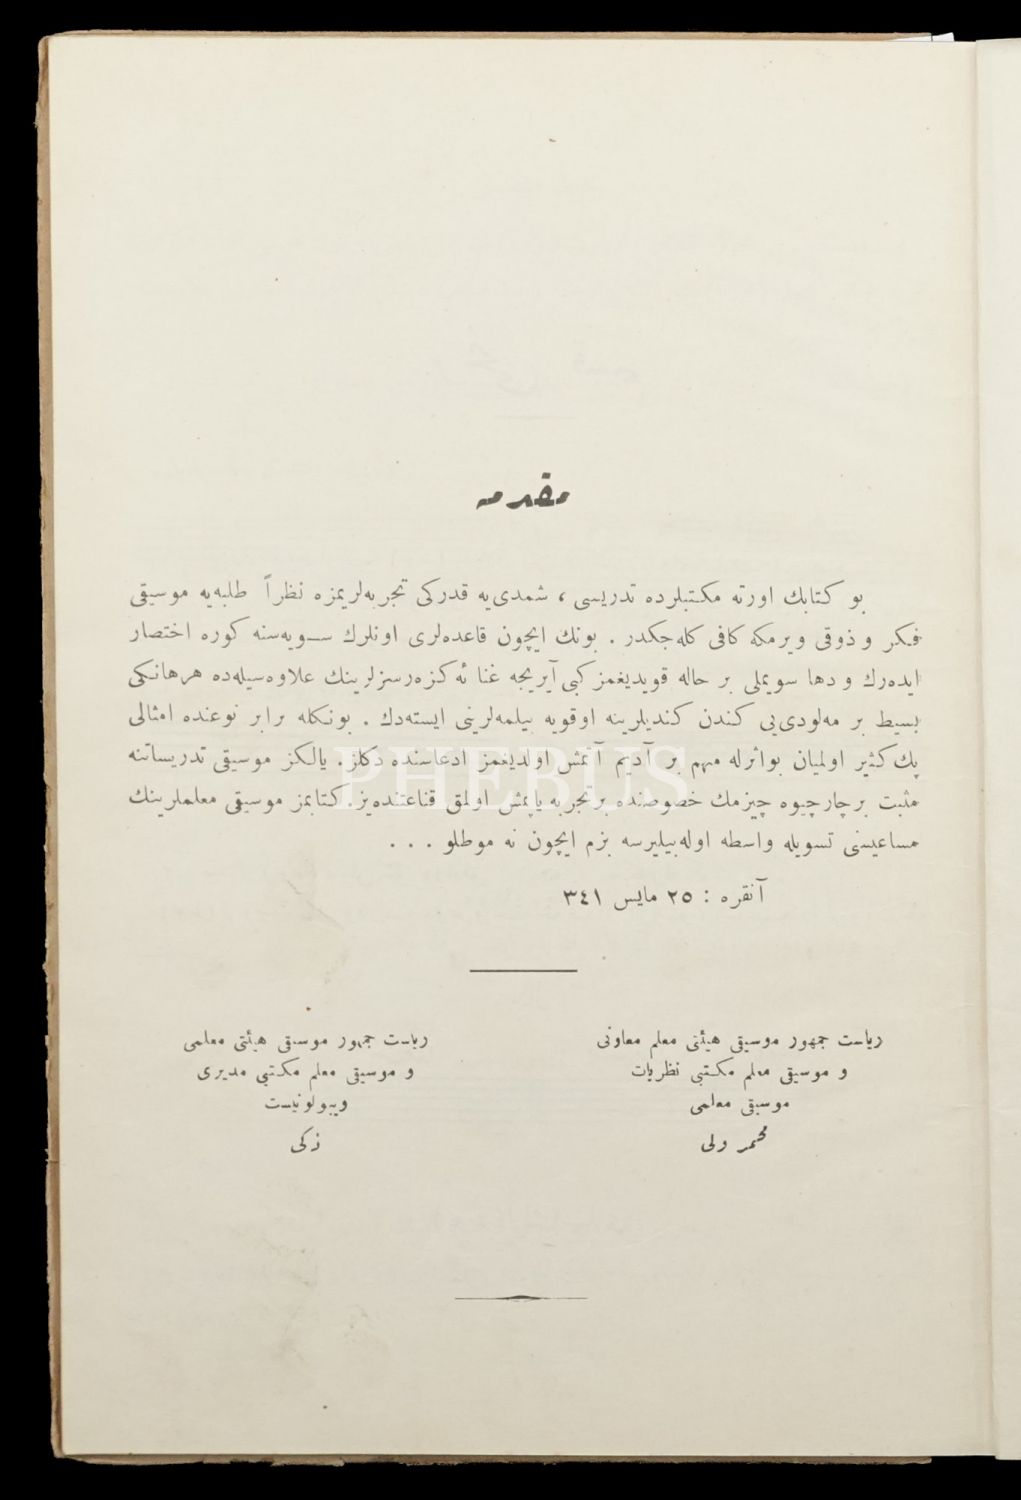 مقدمه
بو كتابك اورته مكتبلرده تدريسى ، شمدى‌يه قدركى تجربه‌لريمزه نظراً طلبه‌يه موسيقى
فكر و ذوقى ويرمكه كافى كله‌جكدر . بونك ايچون قاعده‌لرى اونلرك سـويه‌سنه كوره اختصار
ايده‌رك و دها سويملى بر حاله قويديغمز كبى آيريجه غنا ئه‌كزه‌رسزلرينك علاوه‌سيله‌ده هرهانكى
بسيط بر مه‌لودى‌يى كندى كنديلرينه اوقويه بيلمه‌لرينى ايسته‌دك . بونكله برابر نوعنده امثالى
پك كثير اولميان بواثرله مهم بر آديم آتمش اولديغمز ادعاسنده دكلز . يالكز موسيقى تدريساتنه
مثبت برچارچيوه چيزمك خصوصنده برتجربه ياپمش اولمق قناعتنده‌يز . كتابمز موسيقى معلملرينك
مساعيسنى تسويله واسطه اوله‌بيليرسه بزم ايچون نه موطلو . . .
آنقره : ٢٥ مايس ٣٤١
PHEBUS
رياست جمهور موسيقى هيئتى معلم معاونى
و موسيقى معلم مكتبى نظريات
موسيقى معلمى
محمد ولى
رياست جمهور موسيقى هيئتى معلمى
و موسيقى معلم مكتبى مديرى
ويبولونيست
زكى